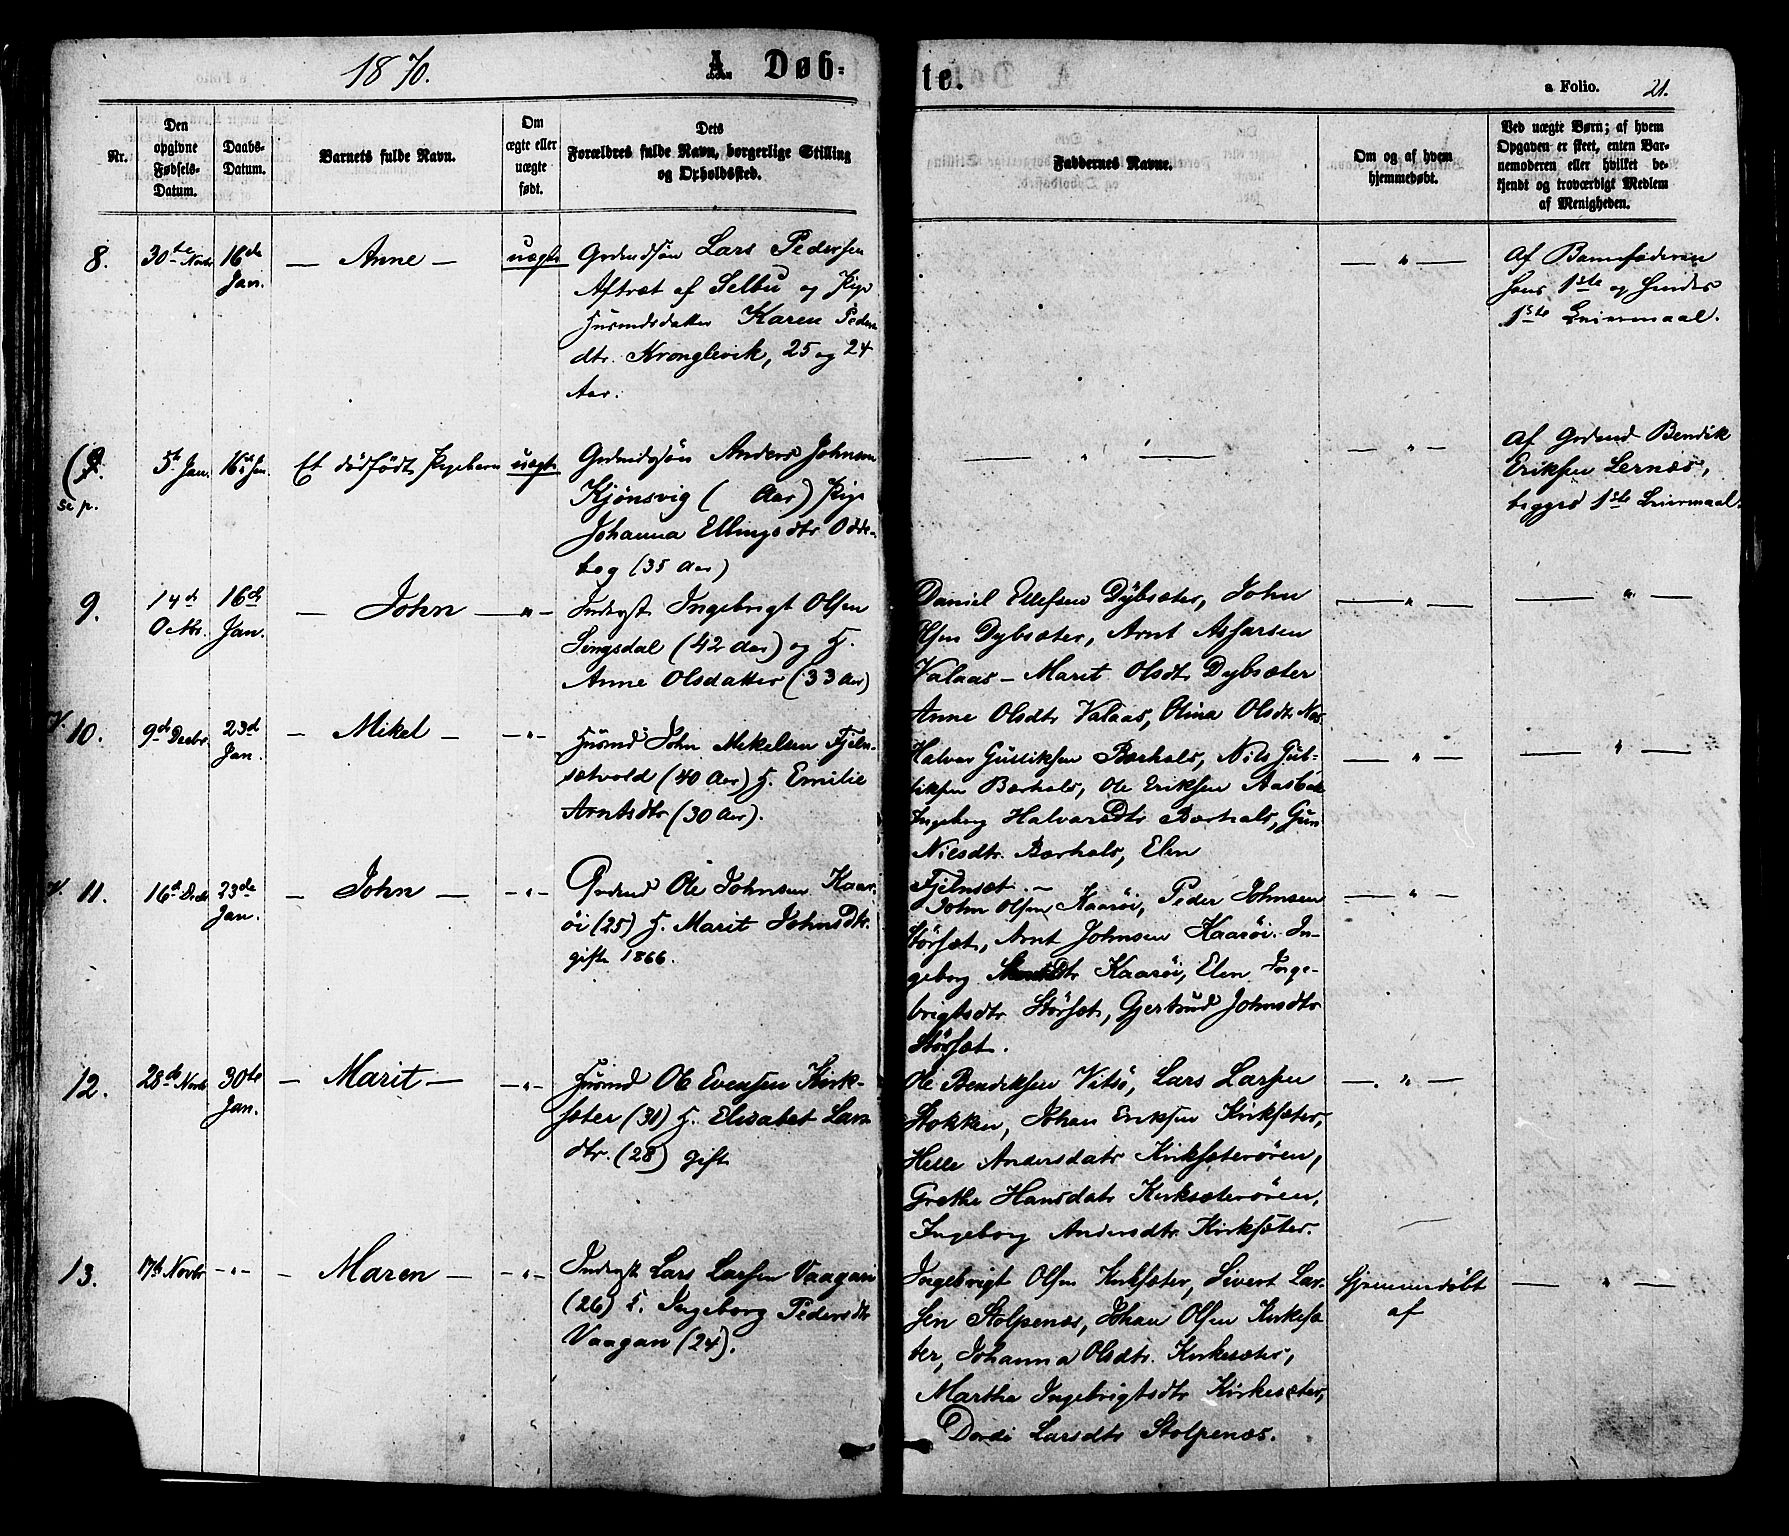 1870.
A Døb-
te.
a Folio. 21.
Nr.
Den opgivne Fødsels-Datum.
Daabs-Datum.
Barnets fulde Navn.
Om ægte eller uægte født.
Dets Forældres fulde Navn, borgerlige Stilling og Opholdssted.
Faddernes Navne.
Om og af hvem hjemmedøbt.
Ved uægte Børn; af hvem Opgaven er skeet, enten Barnemoderen eller hvilket bekjendt og troværdigt Medlem af Menigheden.
8. 30te Novbr 16de Jan. — Anne — uægte
Grdmdsøn Lars Pedersen
Aftræt af Selbu og Pige
Husmdsdatter Karen Peders
dtr. Kronglevik, 25 og 24
Aar.
— " —
Af Barnefaderen
hans 1ste og hendes
1ste Leiermaal.
(9. 5te Jan. 16de Jan. Et dødfødt Pigebarn uægte
se p.
Grdmdssøn Anders Johnsen
Kjönsvig ( Aar) Pige
Johanna Ellingsdtr Odde-
bog (35 Aar)
— " —
Af Grdmd Bendik
Eriksen Lernæs,
begges 1ste Leiermaal.
9. 14de Octbr. 16de Jan. — John — "
Inderst Ingebrigt Olsen
Singsdal (42 Aar) og H.
Anne Olsdatter (33 Aar)
Daniel Ellefsen Dybsæter, John
Olsen Dybsæter, Arnt Assarsen
Valaas — Marit Olsdtr Dybsæter
Anne Olsdtr Valaas, Olina Olsdtr
— " —
— " —
V. 10. 9de Decbr 23de Jan. — Mikel — "
Husmd John Mikelsen Fjeln-
sætvold (40 Aar) H. Emilie
Arntsdtr (30 Aar).
Halvor Gulliksen Bærhals, Nils Gul-
liksen Bærhals, Ole Eriksen
Ingeborg Halvorsdtr Bærhals, Gun
Nilsdtr. Bærhals, Elen
Fjelnset. —
— " —
— " —
V. 11. 16de Decbr 23de Jan. — John — "
Grdmd Ole Johnsen Kaar-
öi (25) H. Marit Johnsdtr.
gifte 1866.
John Olsen Kaaröi, Peder Johnsen
Störset, Arnt Johnsen Kaaröi. In-
geborg Kaaröi, Elen Inge-
brigtsdtr Störset, Gjertrud Johnsdtr
Störset.
— " —
12. 28de Novbr 30te Jan. — Marit — "
Husmd Ole Evensen Kirk-
sæter (31) H. Elisabet Lars
dtr. (28) gift
Ole Bendiksen Vitsö, Lars Larsen
Stokken, Johan Eriksen Kirksæter,
Helle Andersdatr Kirksæterören,
Grethe Hansdatr Kirksæterören,
Ingeborg Andersdtr Kirksæter.
— " —
13. 17de Novbr — " — — Maren — "
Inderst Lars Larsen Vaagan
(26) H. Ingeborg Pedersdtr
Vaagan (24).
Ingebrigt Olsen Kirksæter, Sivert Lar-
sen Stolpenæs, Johan Olsen Kirkesæ-
ter, Johanna Olsdtr. Kirkesæter,
Marthe Ingebrigtsdtr Kirkesæter,
Dordi Larsdtr Stolpenæs.
Hjemmedøbt
af
— " —